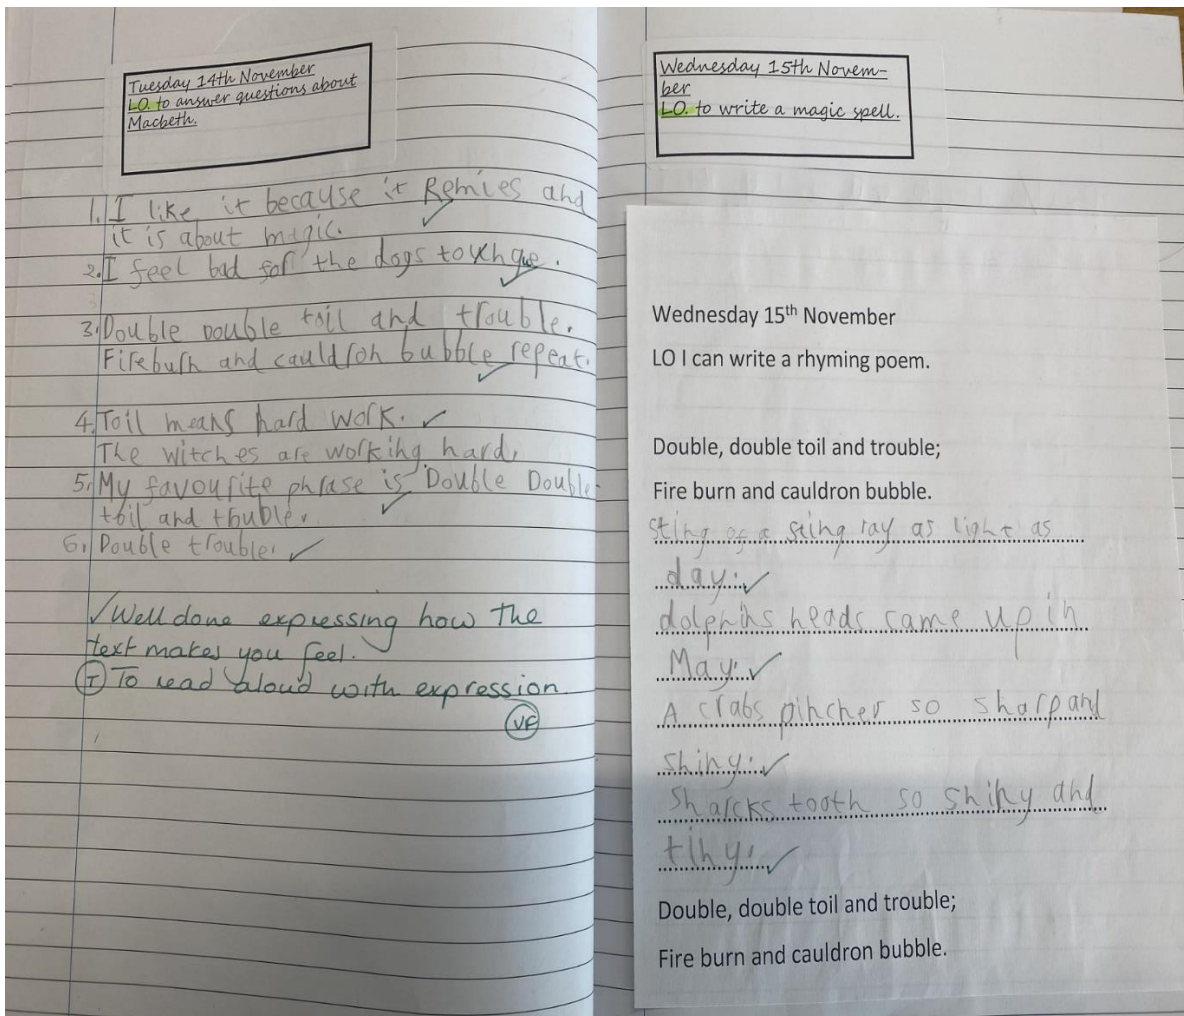 Tuesday 14th November
LO. to answer questions about
Macbeth.
1. I like it because it Remies and
it is about magic.
2. I feel bad for the dogs toungue.
3. Double Double toil and trouble.
Fireburn and cauldron bubble repeat.
4. Toil means hard work.
The witches are working hard.
5. My favourite phrase is Double Double
toil and trouble.
6. Double trouble.
Well done expressing how the
text makes you feel.
T To read aloud with expression
VF
Wednesday 15th Novem-
ber
LO. to write a magic spell.
Wednesday 15th November
LO I can write a rhyming poem.
Double, double toil and trouble;
Fire burn and cauldron bubble.
sting of a sting ray as light as
day.
dolphins heads came up in
May.
A crabs pincher so sharp and
shiny.
Sharcks tooth so shiny and
tiny.
Double, double toil and trouble;
Fire burn and cauldron bubble.